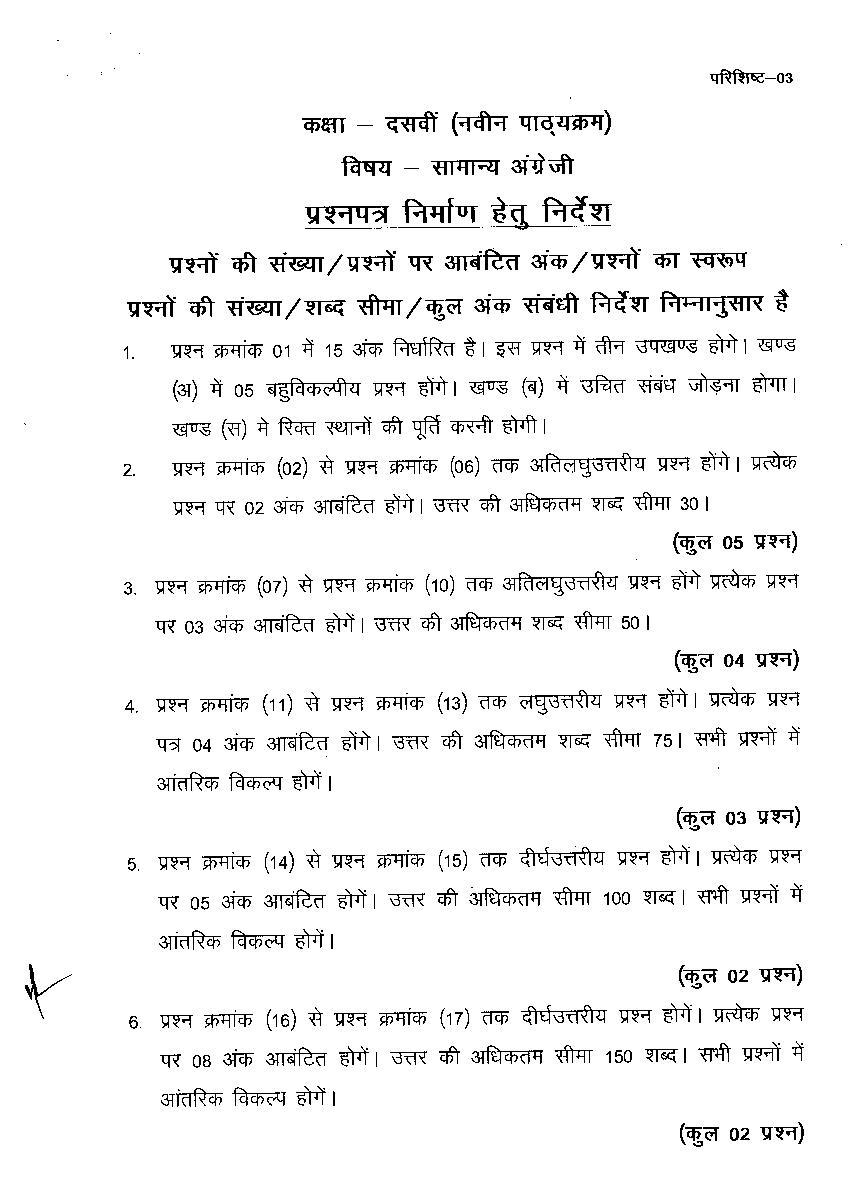 परिशिष्ट–03
कक्षा – दसवीं (नवीन पाठ्यक्रम)
विषय – सामान्य अंग्रेजी
प्रश्नपत्र निर्माण हेतु निर्देश
प्रश्नों की संख्या/प्रश्नों पर आबंटित अंक/प्रश्नों का स्वरूप
प्रश्नों की संख्या/शब्द सीमा/कुल अंक संबंधी निर्देश निम्नानुसार है
1. प्रश्न क्रमांक 01 में 15 अंक निर्धारित है। इस प्रश्न में तीन उपखण्ड होगे। खण्ड
(अ) में 05 बहुविकल्पीय प्रश्न होंगे। खण्ड (ब) में उचित संबंध जोड़ना होगा।
खण्ड (स) मे रिक्त स्थानों की पूर्ति करनी होगी।
2. प्रश्न क्रमांक (02) से प्रश्न क्रमांक (06) तक अतिलघुउत्तरीय प्रश्न होंगे। प्रत्येक
प्रश्न पर 02 अंक आबंटित होंगे। उत्तर की अधिकतम शब्द सीमा 30।
(कुल 05 प्रश्न)
3. प्रश्न क्रमांक (07) से प्रश्न क्रमांक (10) तक अतिलघुउत्तरीय प्रश्न होंगे प्रत्येक प्रश्न
पर 03 अंक आबंटित होगें। उत्तर की अधिकतम शब्द सीमा 50।
(कुल 04 प्रश्न)
4. प्रश्न क्रमांक (11) से प्रश्न क्रमांक (13) तक लघुउत्तरीय प्रश्न होंगे। प्रत्येक प्रश्न
पत्र 04 अंक आबंटित होंगे। उत्तर की अधिकतम शब्द सीमा 75। सभी प्रश्नों में
आंतरिक विकल्प होगें।
(कुल 03 प्रश्न)
5. प्रश्न क्रमांक (14) से प्रश्न क्रमांक (15) तक दीर्घउत्तरीय प्रश्न होगें। प्रत्येक प्रश्न
पर 05 अंक आबंटित होगें। उत्तर की अधिकतम सीमा 100 शब्द। सभी प्रश्नों में
आंतरिक विकल्प होगें।
(कुल 02 प्रश्न)
6. प्रश्न क्रमांक (16) से प्रश्न क्रमांक (17) तक दीर्घउत्तरीय प्रश्न होगें। प्रत्येक प्रश्न
पर 08 अंक आबंटित होगें। उत्तर की अधिकतम सीमा 150 शब्द। सभी प्रश्नों में
आंतरिक विकल्प होगें।
(कुल 02 प्रश्न)